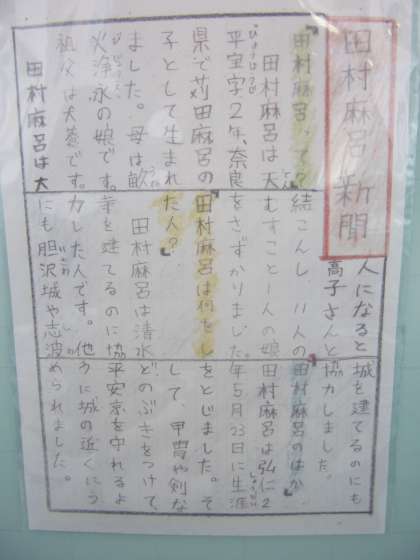 田村麻呂新聞
『田村麻呂って?』
田村麻呂は天
平宝字2年、奈良
県で苅田麻呂の
子として生まれ
ました。母は畝
火浄永の娘です。
祖父は犬養です。
田村麻呂は大
人になると
高子さんと
結こんし、11人の
むすこと一人の娘
をさずかりました。
『田村麻呂は何をし
た人?』
田村麻呂は清水
寺を建てるのに協
力した人です。他
にも胆沢城や志波
城を建てるのにも
協力しました。
『田村麻呂のはか』
田村麻呂は弘仁2
年5月23日に生涯
をとじました。そ
して、甲冑や剣な
どのぶきをつけて、
平安京を守れるよ
うに城の近くにう
められました。